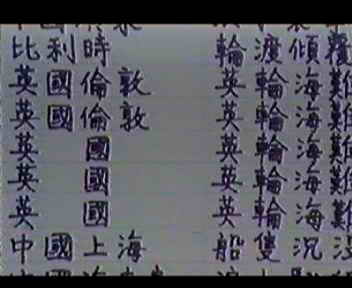 比利時 輪渡傾覆
英國倫敦 英輪海難
英國倫敦 英輪海難
英國 英輪海難
英國 英輪海難
英國 英輪海難
中國上海 船隻沉沒